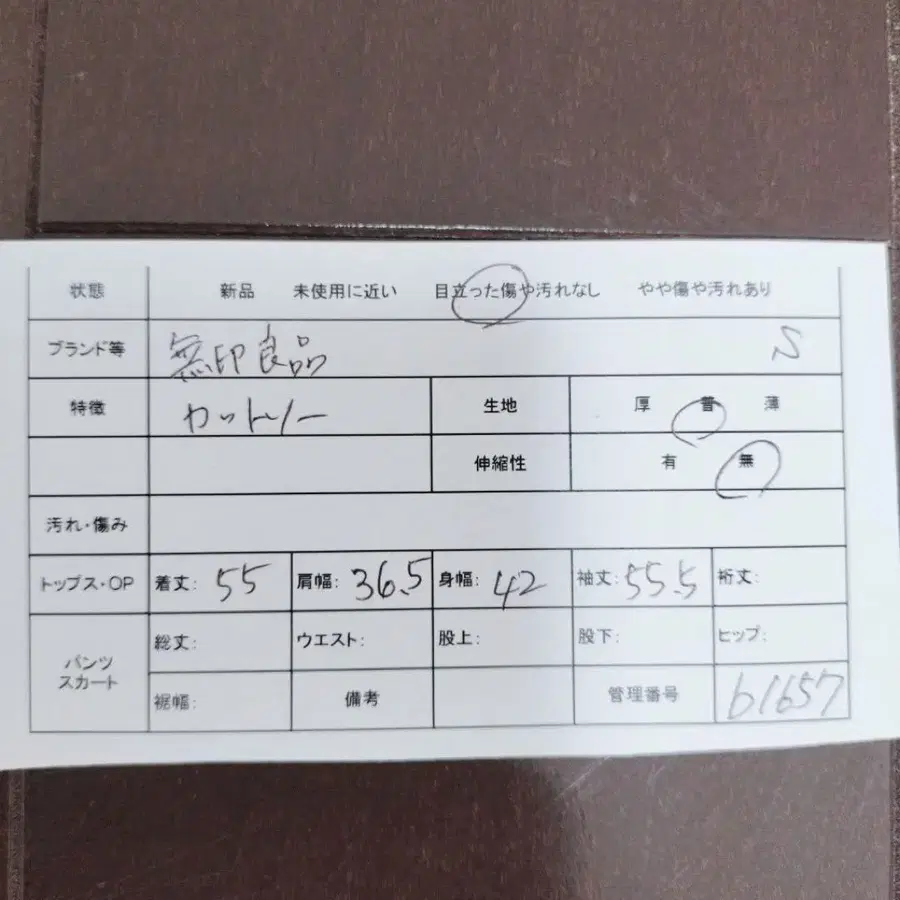 状態 新品 未使用に近い 目立った傷や汚れなし やや傷や汚れあり
ブランド等 無印良品 S
特徴 カットソー 生地 厚 普 薄
伸縮性 有 無
汚れ・傷み
トップス・OP 着丈: 55 肩幅: 36.5 身幅: 42 袖丈: 55.5 裄丈:
パンツ スカート 総丈: ウエスト: 股上: 股下: ヒップ:
裾幅: 備考 管理番号 b1657